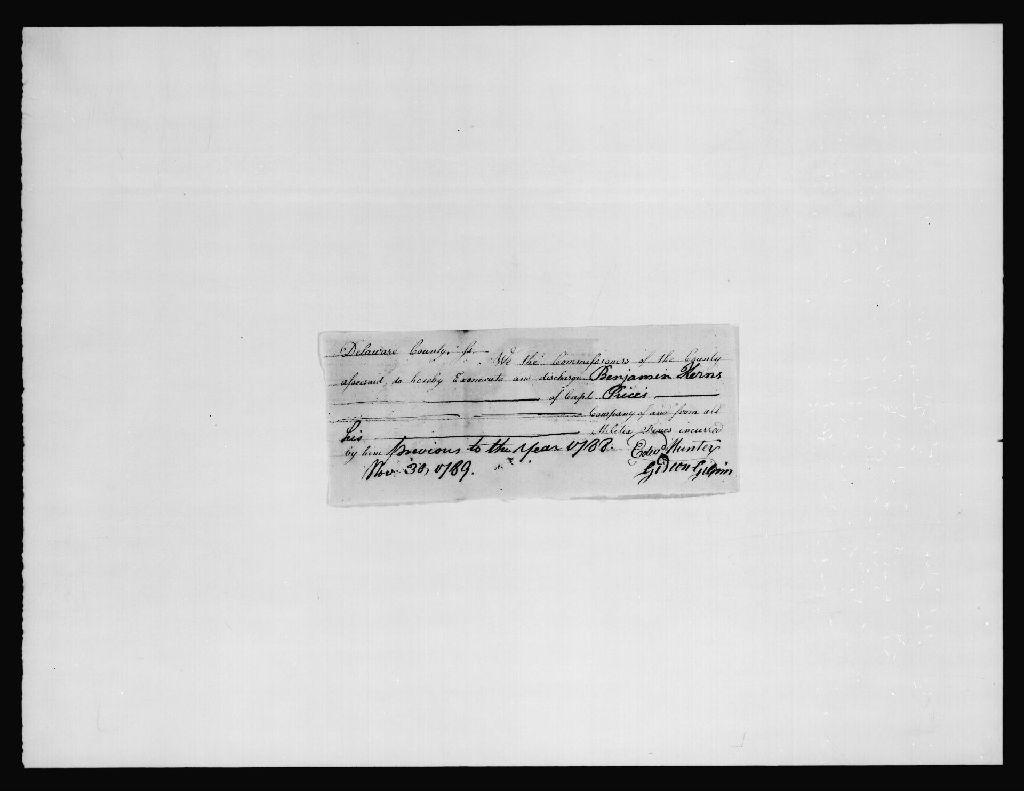 Delaware County, ss.
We the Commissioners of the County
aforesaid, do hereby Exonerate and discharge Benjamin Kerns
of Capt. Prices
Company of and from all
his Militia Fines incurred
by him previous to the Year 1788. Edwd Hunter
Nov. 30, 1789. Gideon Gilpin